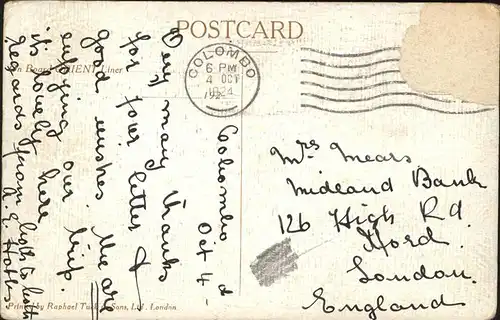 POSTCARD
On Board ORIENT Liner
COLOMBO
6 PM
4 OCT
1924
Colombo
Oct 4
Very many thanks
for your letter &
good wishes. We are
enjoying our trip.
it's lovely here
regards from both to both
Mrs Mears
Midland Bank
126 High Rd.
Ilford.
London.
England
Printed by Raphael Tuck & Sons, Ltd. London.